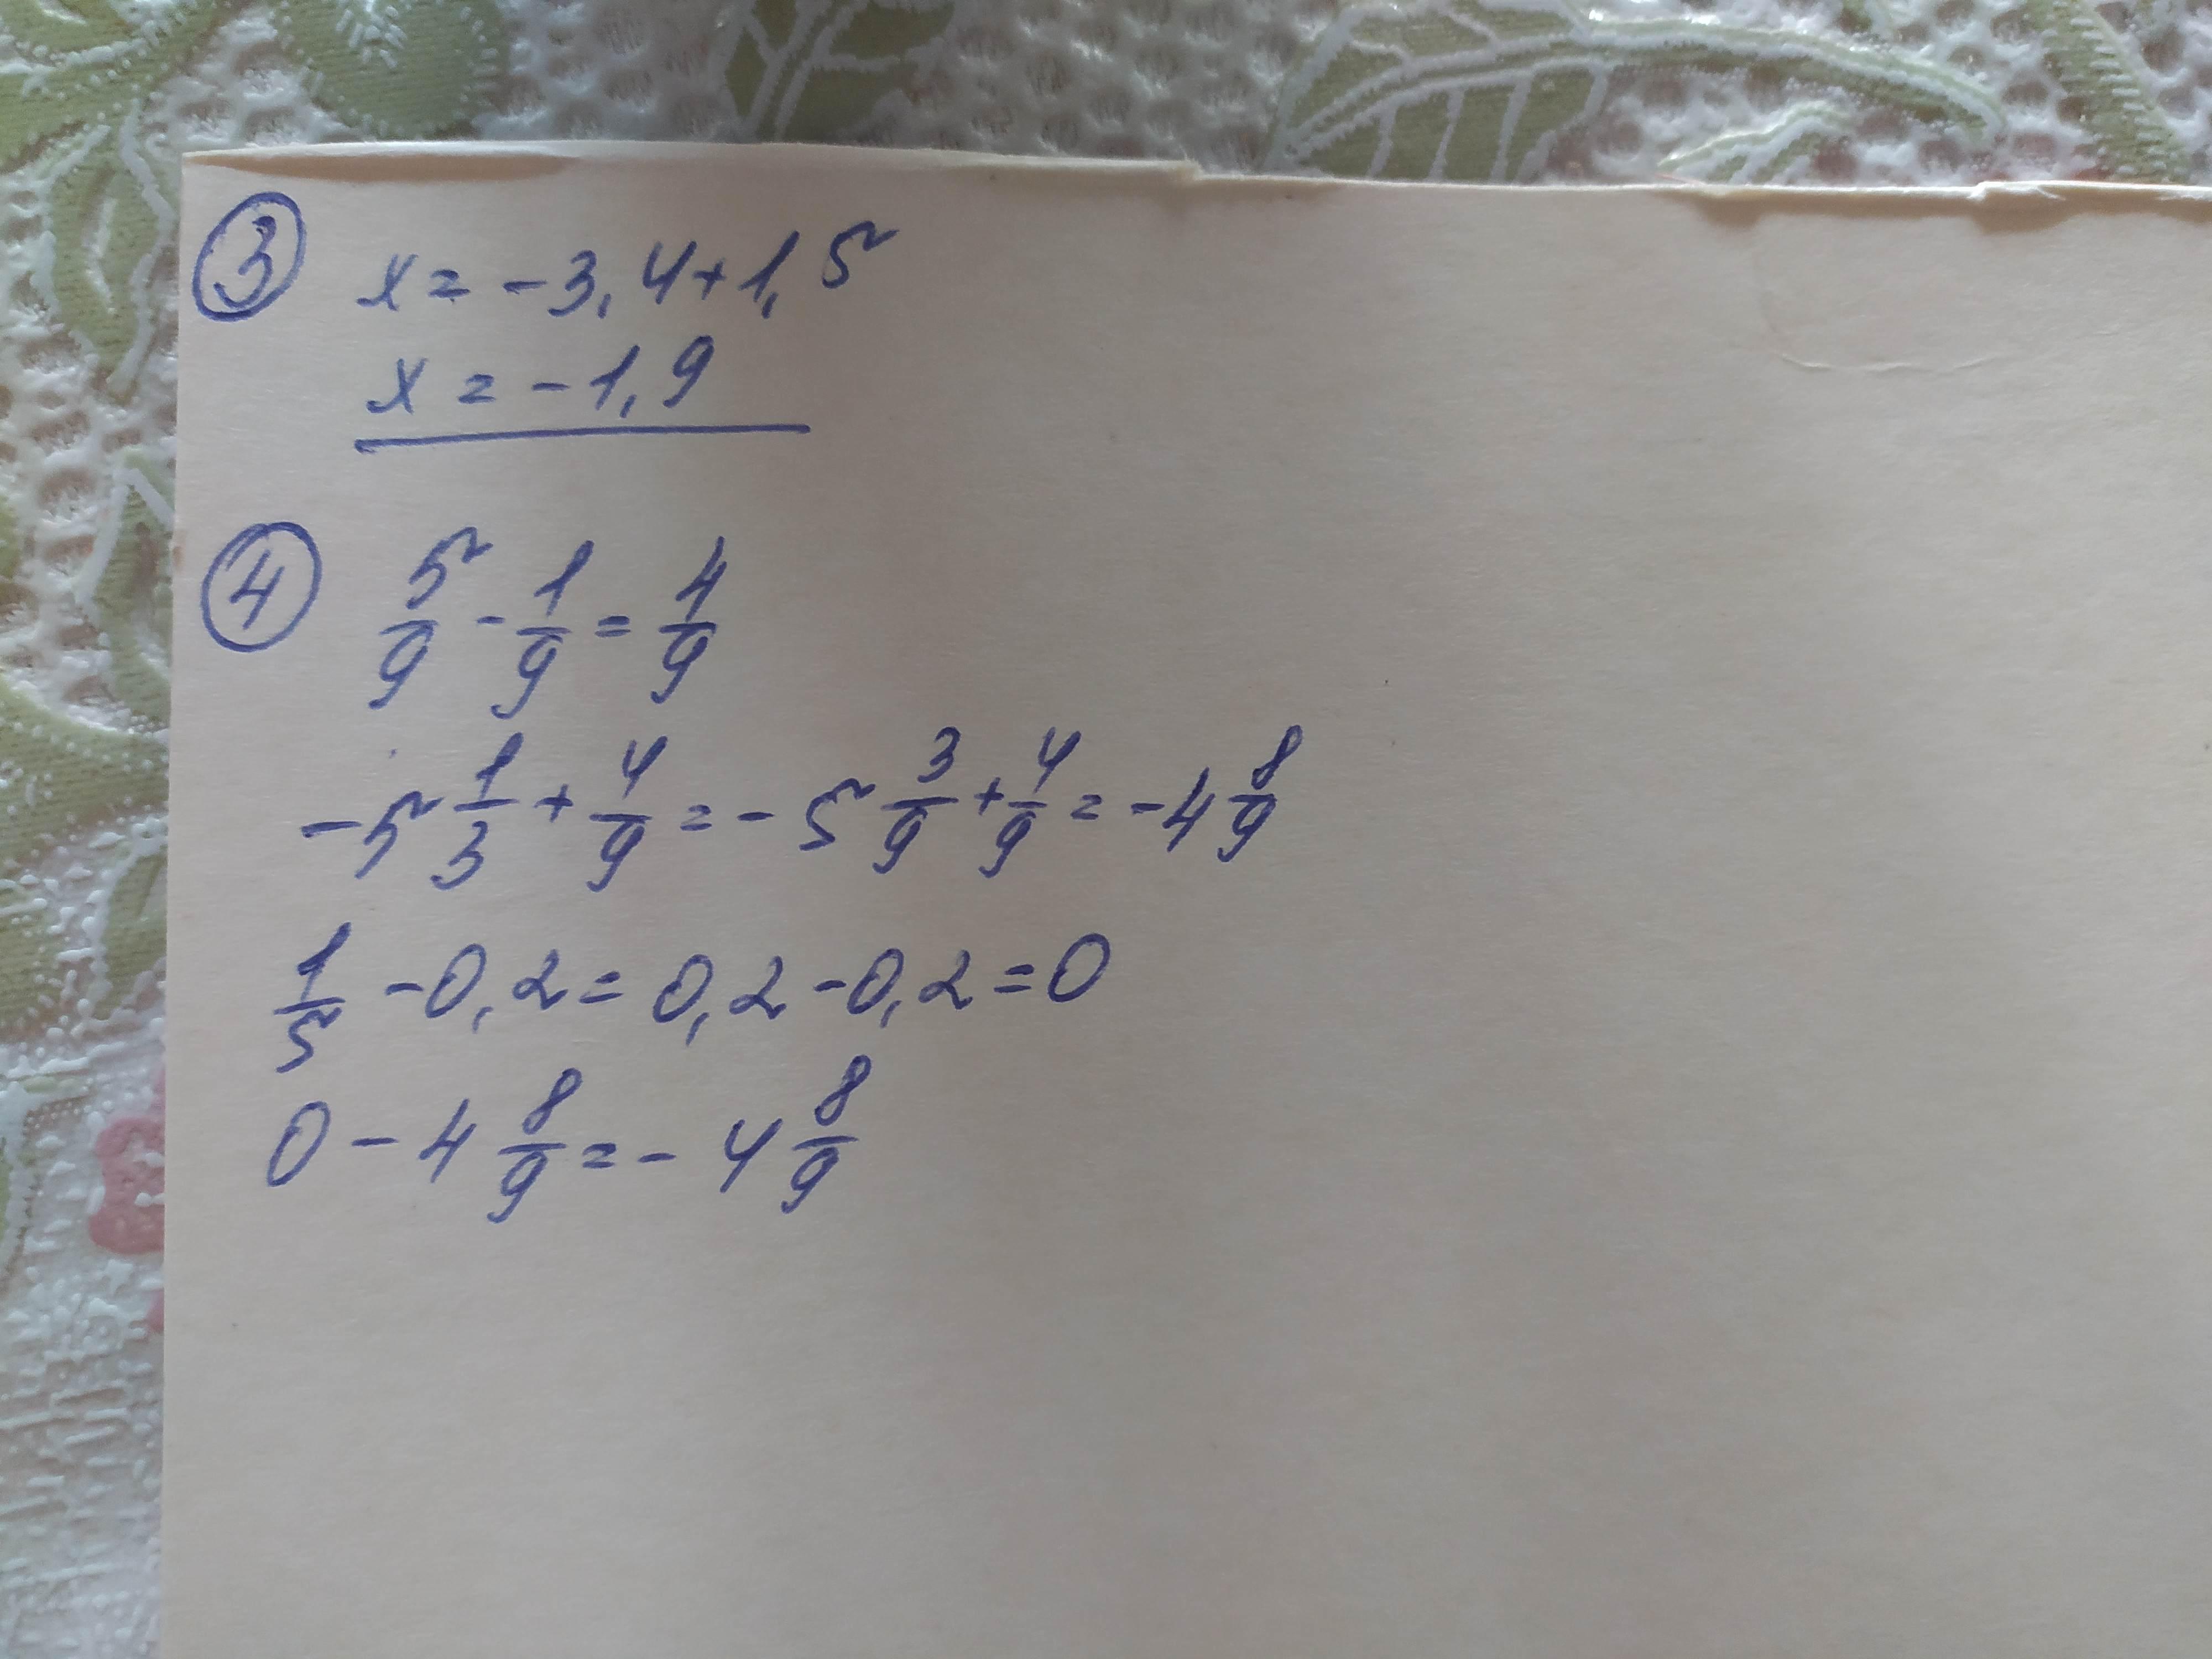 ③ x = -3,4+1,5
x = -1,9
④ 5/9 - 1/9 = 4/9
-5 1/3 + 4/9 = -5 3/9 + 4/9 = -4 8/9
1/5 - 0,2 = 0,2 - 0,2 = 0
0 - 4 8/9 = - 4 8/9